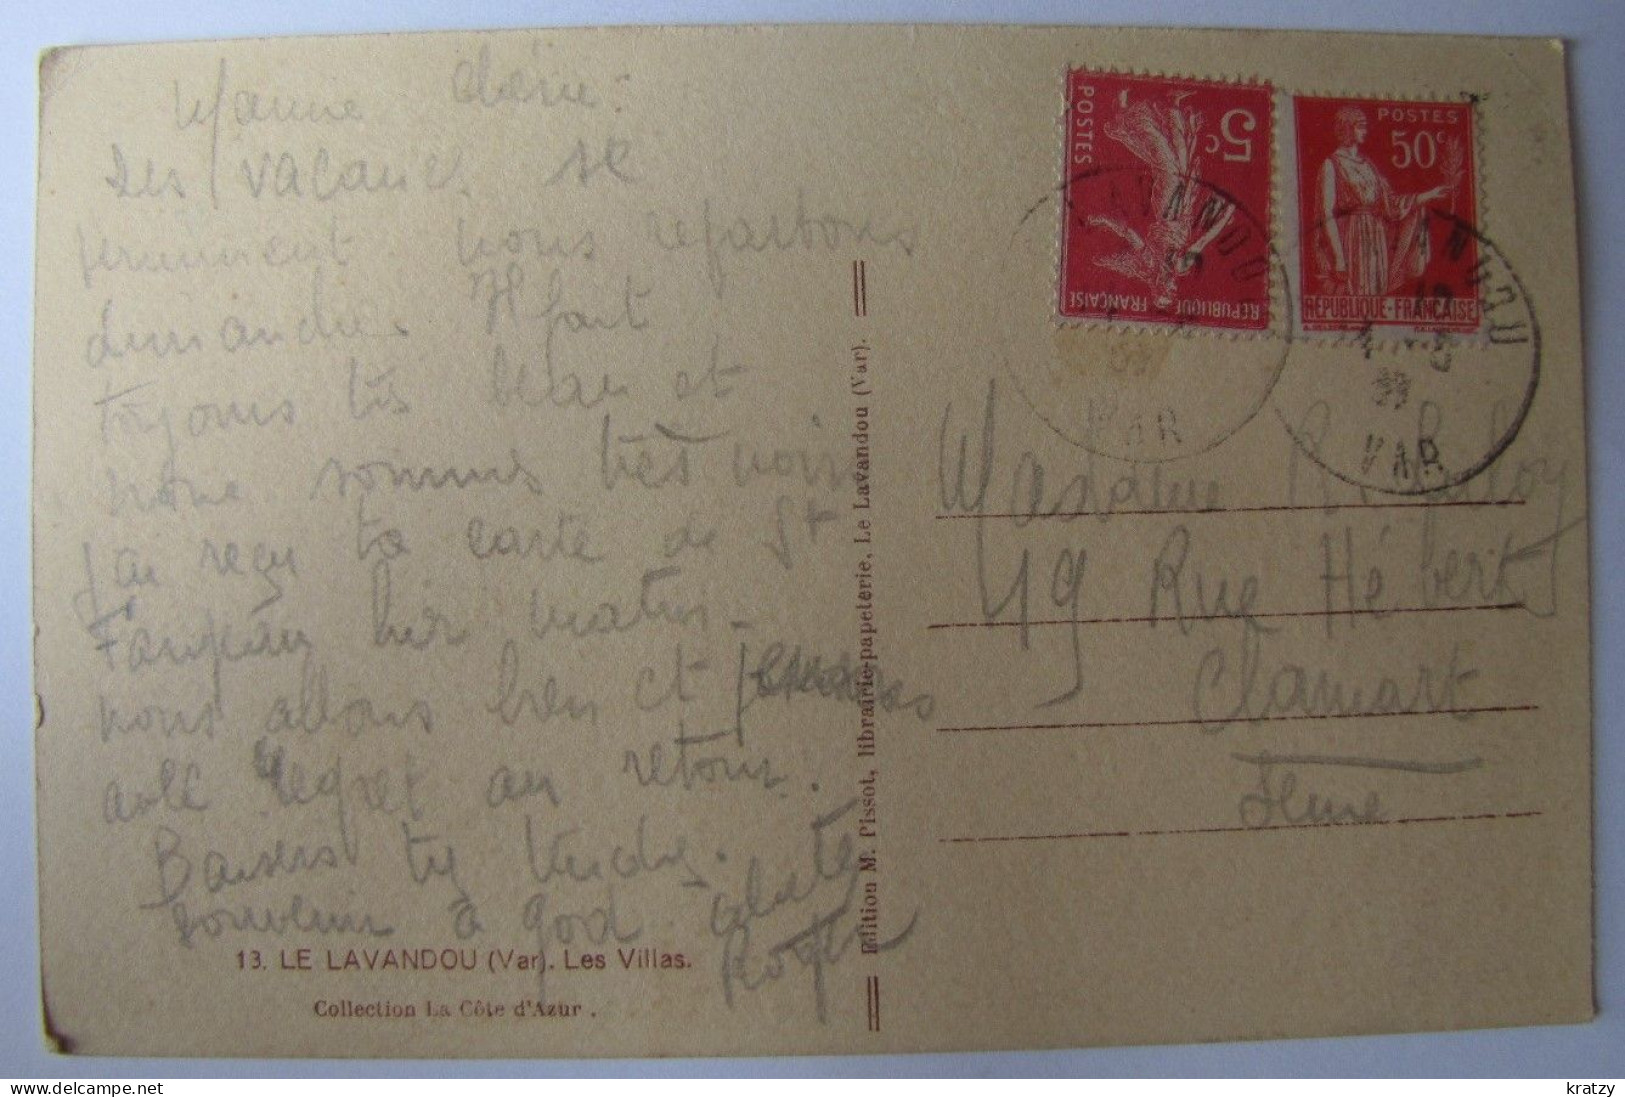 chérie :
Les vacances se
terminent nous repartons
dimanche. Il fait
toujours très beau et
nous sommes très noirs
j'ai reçu ta carte de St
hier matin -
nous allons bien et
avec regret au retour.
Baisers
souvenir à
Roger
13. LE LAVANDOU (Var). Les Villas.
Collection La Côte d'Azur.
Edition M. Pissot, librairie-papeterie, Le Lavandou (Var).
POSTES
5c
RÉPUBLIQUE FRANÇAISE
POSTES
50c
RÉPUBLIQUE-FRANÇAISE
LAVANDOU
VAR
VAR
Madame
49 Rue Hébert
Clamart
Seine
kratzy